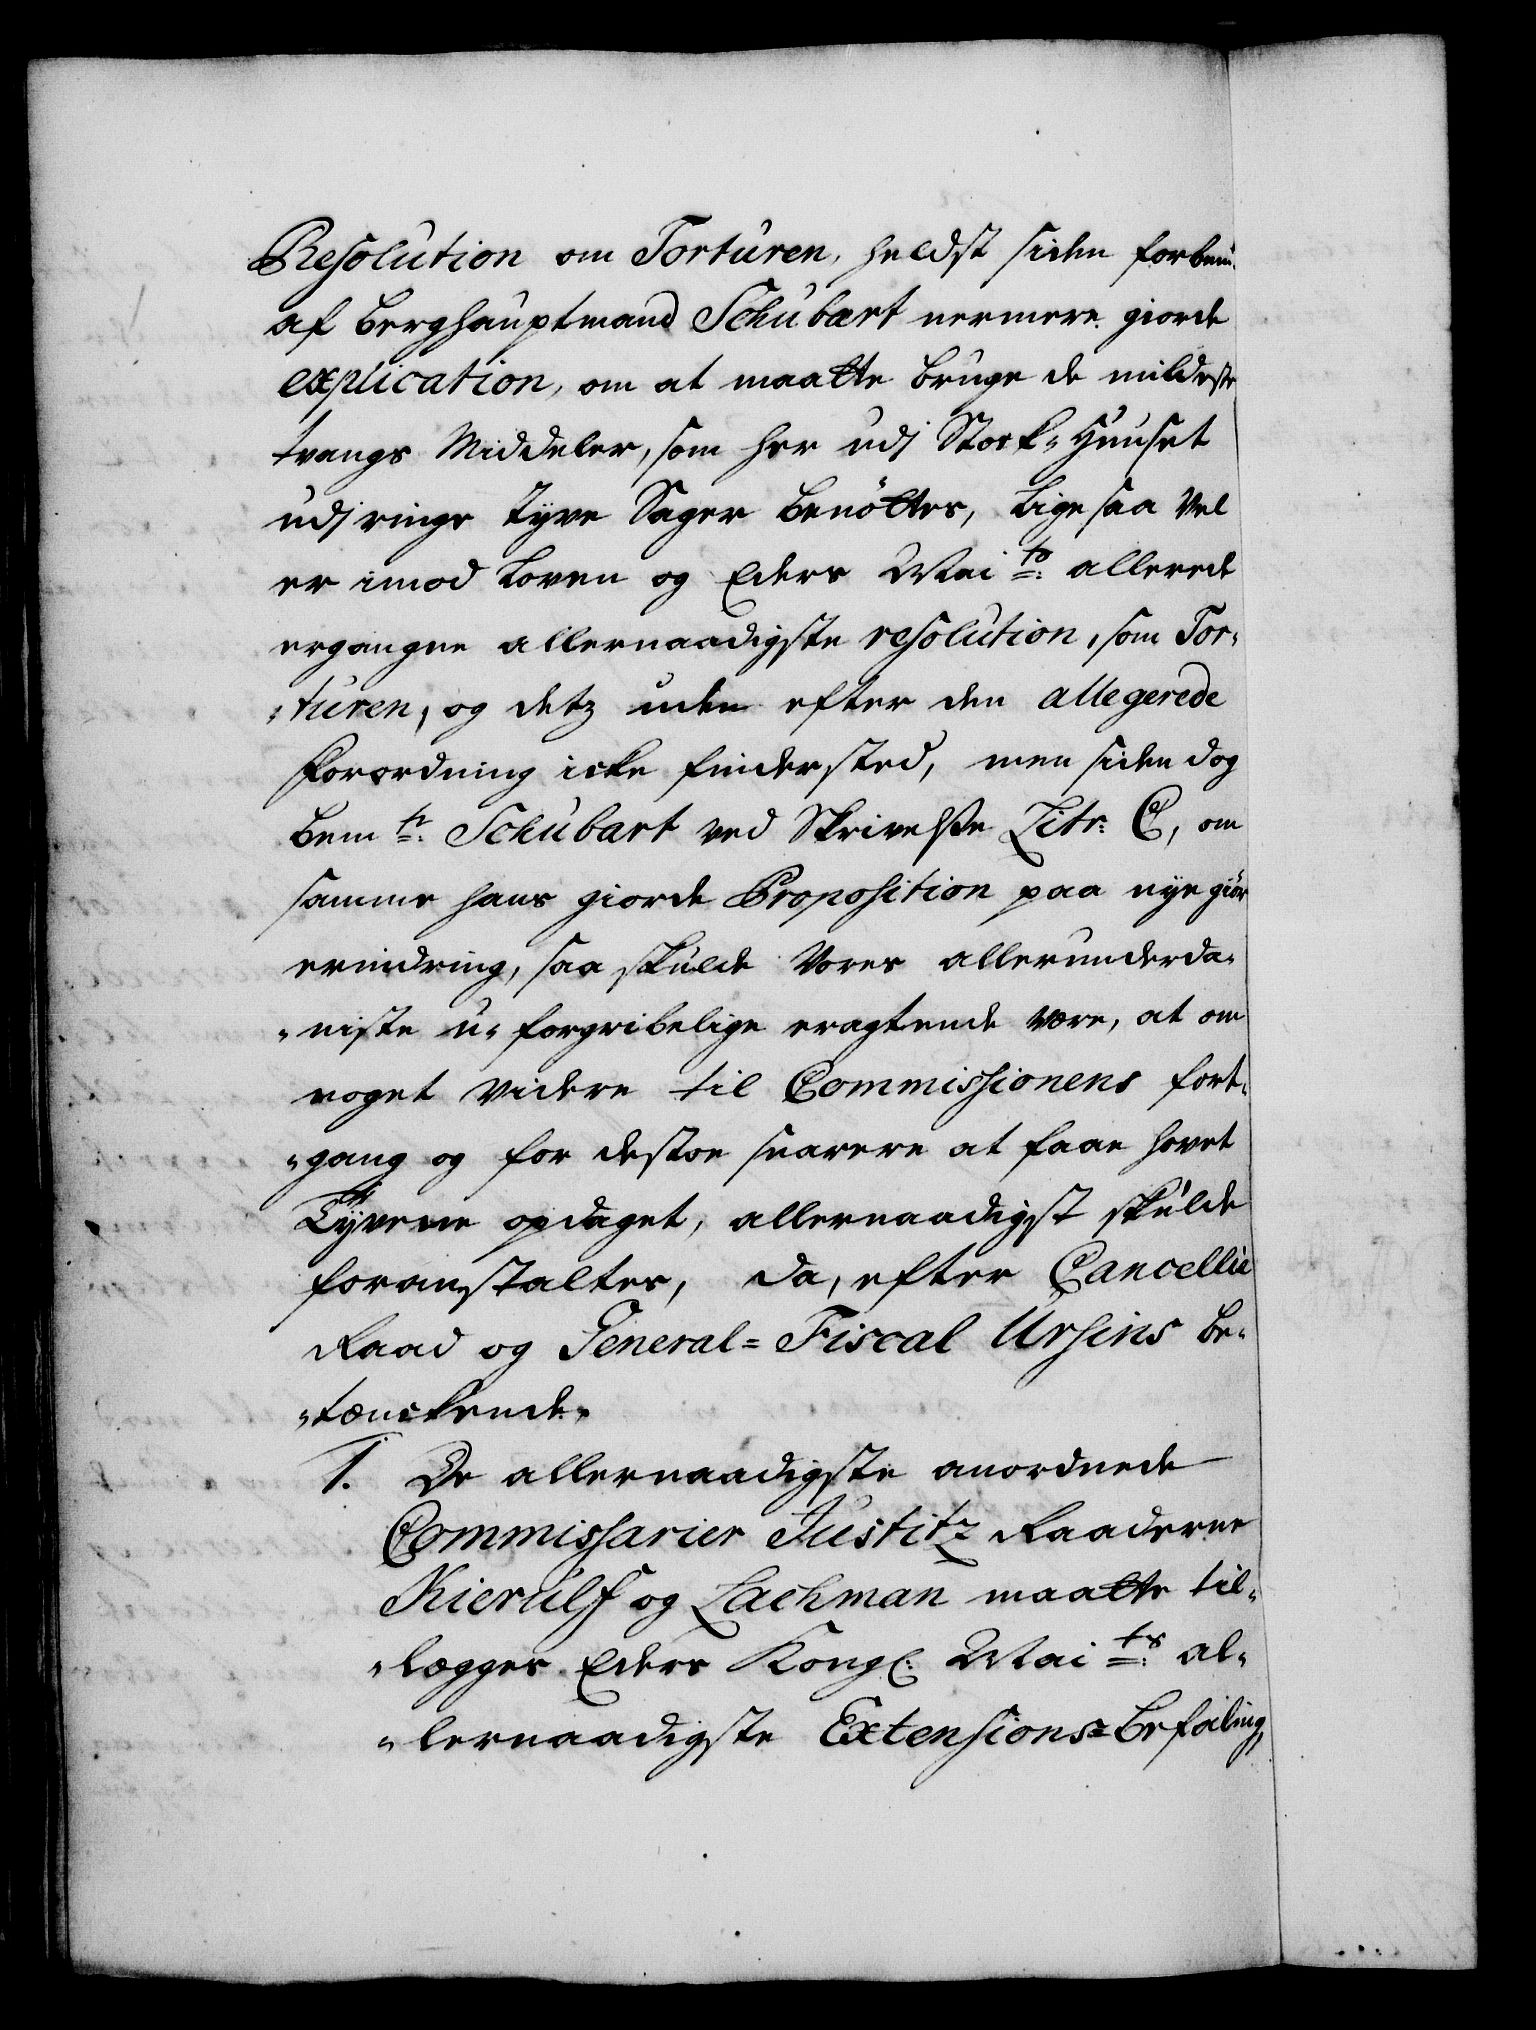 Resolution om Torturen, heldst siden forbem:
af Berghauptmand Schubart nermere giorde
explication, om at maatte bruge de mildeste
tvangs Middeler, som her udj Stock-Huuset
udj ringe Tyve Sager benöttes, lige saa vel
er imod Loven og Eders Maits: allerede
ergangne allernaadigste resolution, som Tor-
-turen, og detz uden efter den allegerede
Forordning icke finder sted, men siden dog
bemte: Schubart ved Skrivelse Litr: C, om
samme hans giorde Proposition paa nye giör
erindring, saa skulde Vores allerunderda-
-niste u-forgribelige eragtende være, at om
noget videre til Commissionens fort-
-gang og for destoe snarere at faae hovet
Tyvene opdaget, allernaadigst skulde
foranstaltes, da, efter Cancellie
Raad og General-Fiscal Ursins be-
-tænckende.
1. De allernaadigste anordnede
Commissarier Justitz Raaderne
Kierulf og Lachman maatte til-
-lægges Eders Kongl: Maits: al-
-lernaadigste Extensions-Befaling,